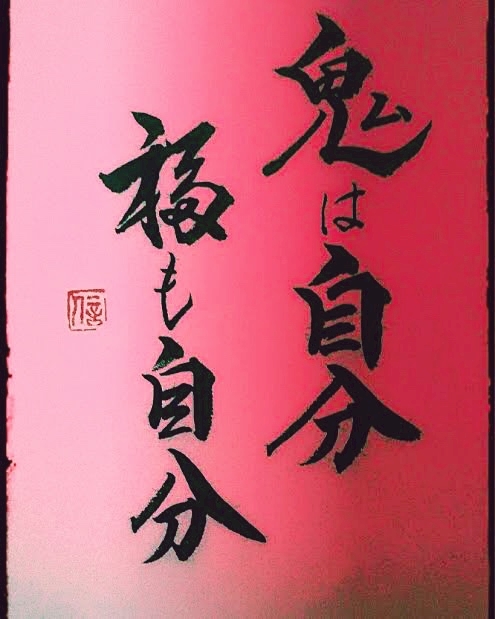 鬼は自分
福も自分
信